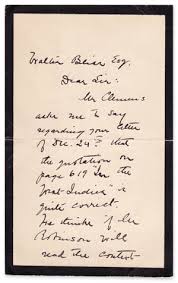 Walter Bliss Esq.
Dear Sir:
Mr Clemens
asks me to say
regarding your letter
of Dec. 24th that
the quotation on
page 619 "In the
East Indies" is
quite correct.
He thinks if Mr
Robinson will
read the context